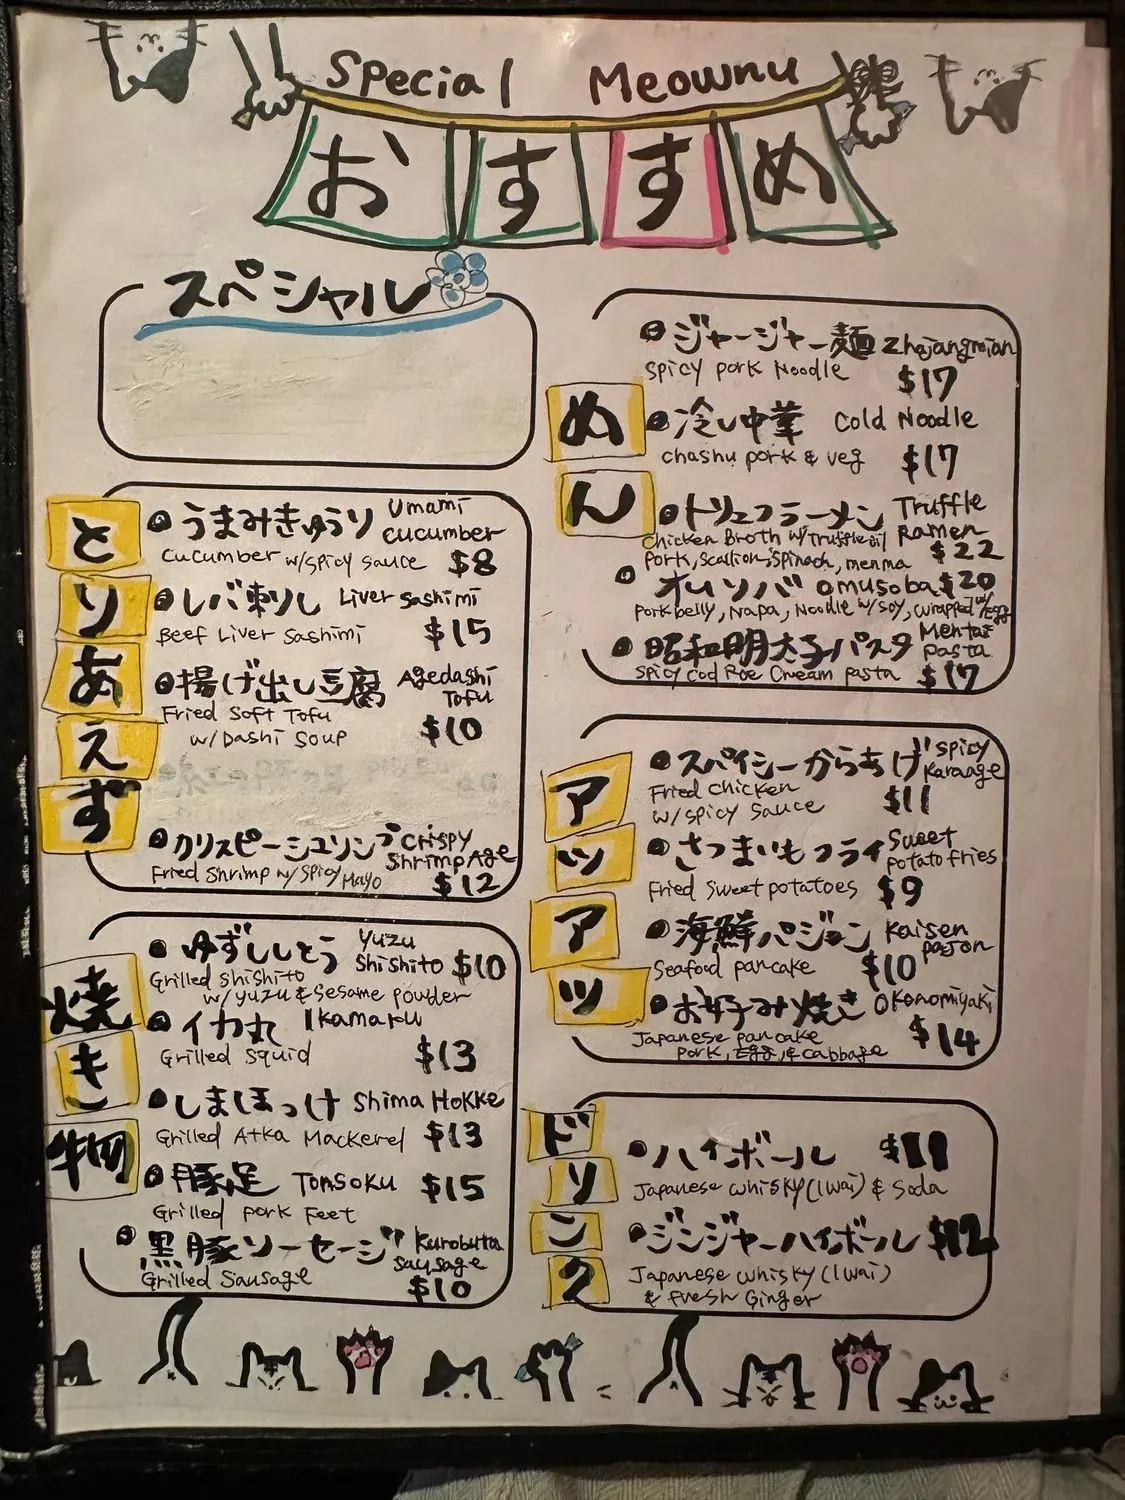 Special Meownu
おすすめ
スペシャル
とりあえず
うまみきゅうり Umami cucumber
cucumber w/spicy sauce $8
レバ刺し Liver Sashimi
Beef Liver Sashimi $15
揚げ出し豆腐 Agedashi Tofu
Fried Soft Tofu
w/Dashi Soup $10
クリスピーシュリンプ Crispy Shrimp Age
Fried Shrimp w/Spicy Mayo $12
焼き物
ゆずししとう Yuzu Shishito $10
Grilled Shishito
w/yuzu & Sesame powder
イカ丸 Ikamaru
Grilled Squid $13
しまほっけ Shima Hokke
Grilled Atka Mackerel $13
豚足 Tonsoku $15
Grilled pork Feet
黒豚ソーセージ Kurobuta sausage
Grilled Sausage $10
めん
ジャージャー麺 Zhajangmian
Spicy pork Noodle $17
冷し中華 Cold Noodle
chashu pork & veg $17
トリュフラーメン Truffle Ramen
Chicken Broth w/Truffle oil
pork, Scallion, Spinach, menma $22
オムソバ omusoba $20
Porkbelly, Napa, Noodle w/Soy, wrapped w/Egg
昭和明太子パスタ Mentai pasta
Spicy Cod Roe Cream pasta $17
アツアツ
スパイシーからあげ Spicy Karaage
Fried Chicken
w/spicy sauce $11
さつまいもフライ Sweet potato fries
Fried Sweet potatoes $9
海鮮パジョン Kaisen pajon
Seafood pancake $10
お好み焼き Okonomiyaki
Japanese pancake
pork, Egg, & cabbage $14
ドリンク
ハイボール $11
Japanese whisky (Iwai) & Soda
ジンジャーハイボール $12
Japanese whisky (Iwai)
& Fresh Ginger